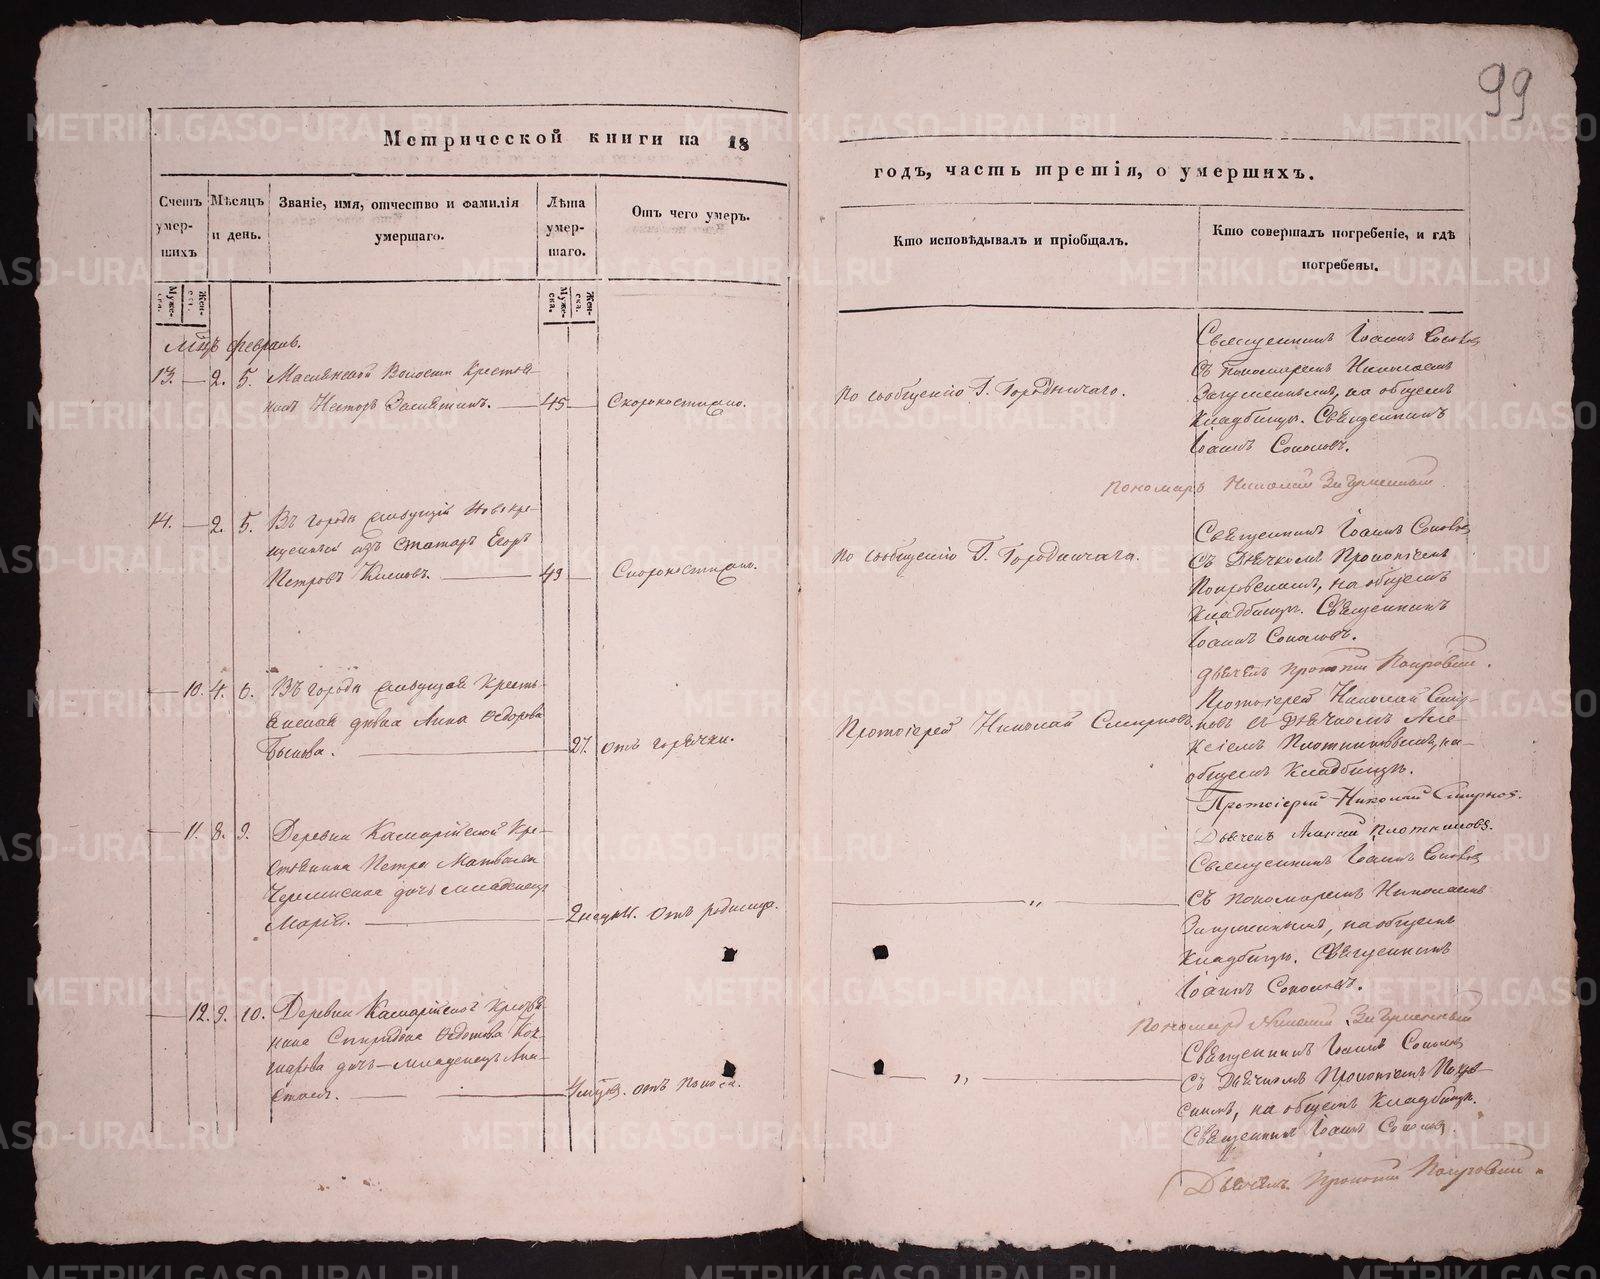 99
Метрической книги на 18
годъ, часть третія, о умершихъ.
Счетъ умерших
Мѣсяцъ и день.
Званіе, имя, отчество и фамилія умершаго.
Лѣта умершаго.
Отъ чего умеръ.
Кто исповѣдывалъ и пріобщалъ.
Кто совершалъ погребеніе, и гдѣ погребены.
Муже-ска.
Жен-ск.
Муже-ска.
Жен-ска.
Мцъ февраль.
13. 2. 5. Волости крестья-
нинъ Несторъ Замятинъ. 45 Скоропостижно.
По сообщенію Г. Городничаго.
Священникъ Іоаннъ Соколовъ
съ Пономаремъ Николаемъ
на общемъ
Кладбищѣ. Священникъ
Іоаннъ Соколовъ.
Пономарь Николай
14. 2. 5. Въ городѣ живущій новокре-
щенный изъ татаръ Егоръ
Петровъ 49 Скоропостижно.
По сообщенію Г. Городничаго.
Священникъ Іоаннъ Соколовъ
съ Дьячкомъ Прокопіемъ
Покровскимъ, на общемъ
Кладбищѣ. Священникъ
Іоаннъ Соколовъ.
Дьячекъ Прокопій Покровскій.
10. 4. 6. Въ городѣ живущая кресть-
янская дѣвка Анна Ѳедорова
Быкова. 27. отъ горячки.
Протоіерей Николай Смирновъ.
Протоіерей Николай Смир-
новъ съ Дьячкомъ Але-
ксіемъ Плотниковымъ, на
общемъ Кладбищѣ.
Протоіерей Николай Смирновъ.
Дьячекъ Алексѣй Плотниковъ.
11. 8. 9. Деревни Кре-
стьянина Петра Матвѣева
дочь младенецъ
Марія. 2 недѣл. отъ родимца.
„
Священникъ Іоаннъ Соколовъ
съ Пономаремъ Николаемъ
на общемъ
Кладбищѣ. Священникъ
Іоаннъ Соколовъ.
Пономарь
12. 9. 10. Деревни Крестья-
нина Спиридона Ѳедотова Кок-
шарова дочь младенецъ Ана-
стасія. отъ поноса.
„
Священникъ Іоаннъ Соколовъ
съ Дьячкомъ Прокопіемъ Покров-
скимъ, на общемъ Кладбищѣ.
Священникъ Іоаннъ Соколовъ.
Дьячекъ Прокопій Покровскій.
METRIKI.GASO-URAL.RU